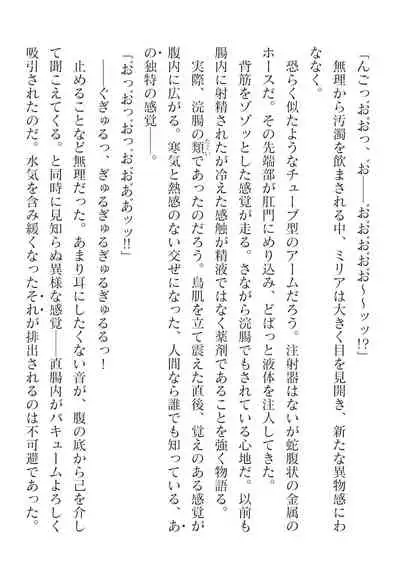 「んごっ、お゛おっ、お――お゛お゛お゛お゛お゛～ッッ!?」
　無理から汚濁を飲まされる中、ミリアは大きく目を見開き、新たな異物感にわ
ななく。
　恐らく似たようなチューブ型のアームだろう。注射器はないが蛇腹状の金属の
ホースだ。その先端部が肛門にめり込み、どばっと液体を注入してきた。
　背筋をゾゾッとした感覚が走る。さながら浣腸でもされている心地だ。以前も
腸内に射精されたが冷えた感触が精液ではなく薬剤であることを強く物語る。
　実際、浣腸の類であったのだろう。鳥肌を立て震えた直後、覚えのある感覚が
腹内に広がる。寒気と熱感のない交ぜになった、人間なら誰でも知っている、あ
の独特の感覚――。
『お゛っ、お゛っ、お゛っ、お゛、お゛ああッッ!!』
　――ぐぎゅるっ、ぎゅるぎゅるぎゅるぎゅるるっ！
　止めることなど無理だった。あまり耳にしたくない音が、腹の底から己を介し
て聞こえてくる。と同時に見知らぬ異様な感覚――直腸内がバキュームよろしく
吸引されたのだ。水気を含み緩くなったそれが排出されるのは不可避であった。